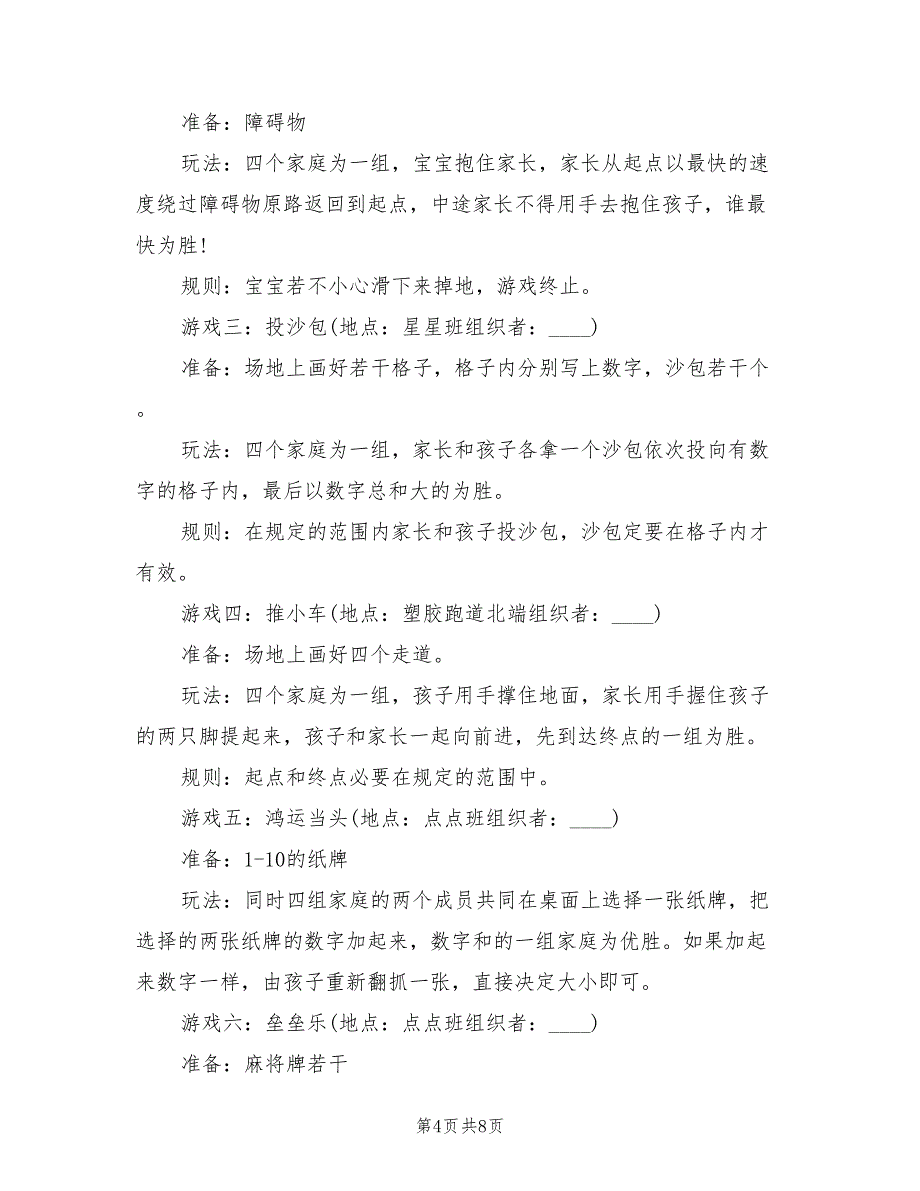 准备：障碍物
玩法：四个家庭为一组，宝宝抱住家长，家长从起点以最快的速
度绕过障碍物原路返回到起点，中途家长不得用手去抱住孩子，谁最
快为胜!
规则：宝宝若不小心滑下来掉地，游戏终止。
游戏三：投沙包(地点：星星班组织者：____)
准备：场地上画好若干格子，格子内分别写上数字，沙包若干个
。
玩法：四个家庭为一组，家长和孩子各拿一个沙包依次投向有数
字的格子内，最后以数字总和大的为胜。
规则：在规定的范围内家长和孩子投沙包，沙包定要在格子内才
有效。
游戏四：推小车(地点：塑胶跑道北端组织者：____)
准备：场地上画好四个走道。
玩法：四个家庭为一组，孩子用手撑住地面，家长用手握住孩子
的两只脚提起来，孩子和家长一起向前进，先到达终点的一组为胜。
规则：起点和终点必要在规定的范围中。
游戏五：鸿运当头(地点：点点班组织者：____)
准备：1-10的纸牌
玩法：同时四组家庭的两个成员共同在桌面上选择一张纸牌，把
选择的两张纸牌的数字加起来，数字和的一组家庭为优胜。如果加起
来数字一样，由孩子重新翻抓一张，直接决定大小即可。
游戏六：垒垒乐(地点：点点班组织者：____)
准备：麻将牌若干
第4页共8页